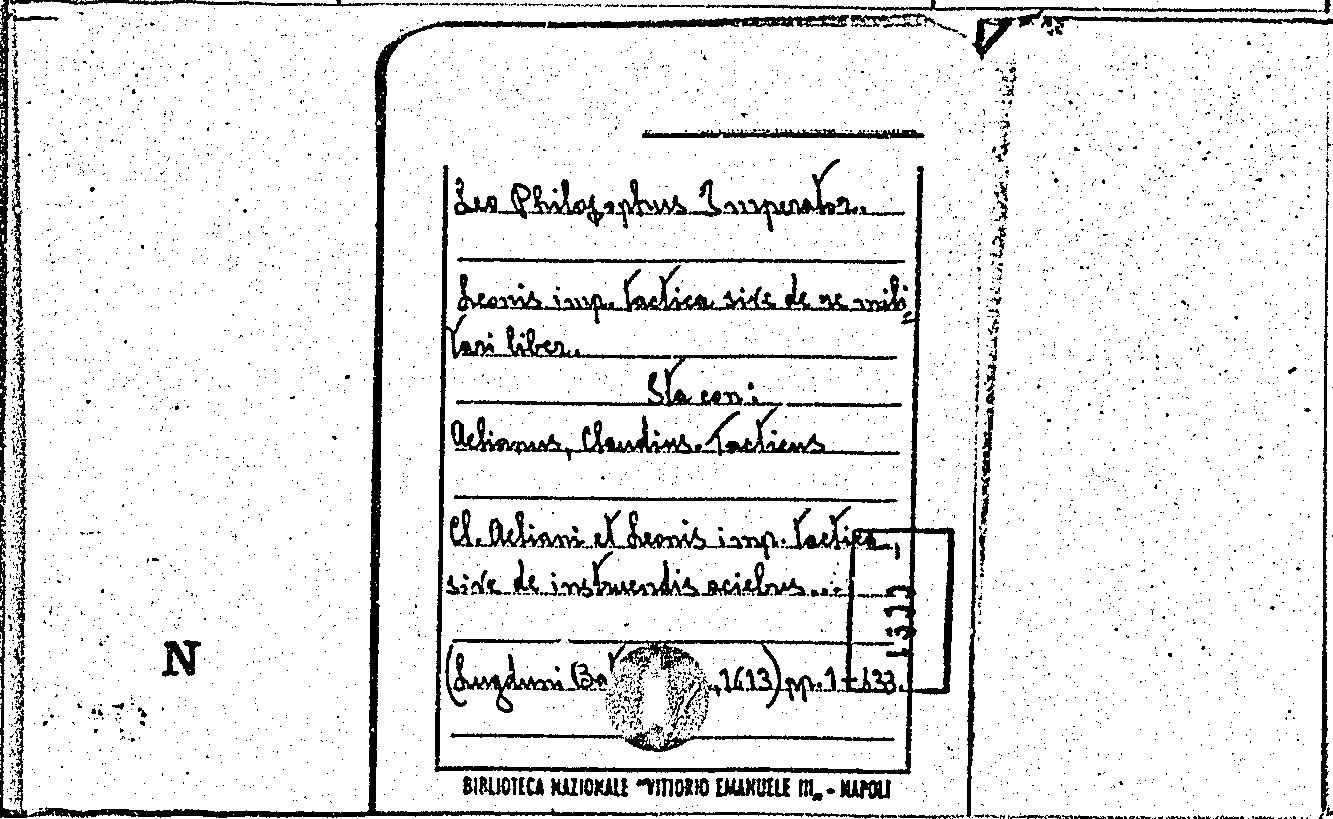 Leo Philosophus Imperator.
Leonis imp. Tactica sive de re mili,
tari liber.
Sta con:
Aelianus, Claudius. Tacticus
Cl. Aeliani et Leonis imp. Tactica,
sive de instruendis aciebus...
(Lugduni Bat , 1613) pp. 1-
N
BIBLIOTECA NAZIONALE "VITTORIO EMANUELE III„ - NAPOLI